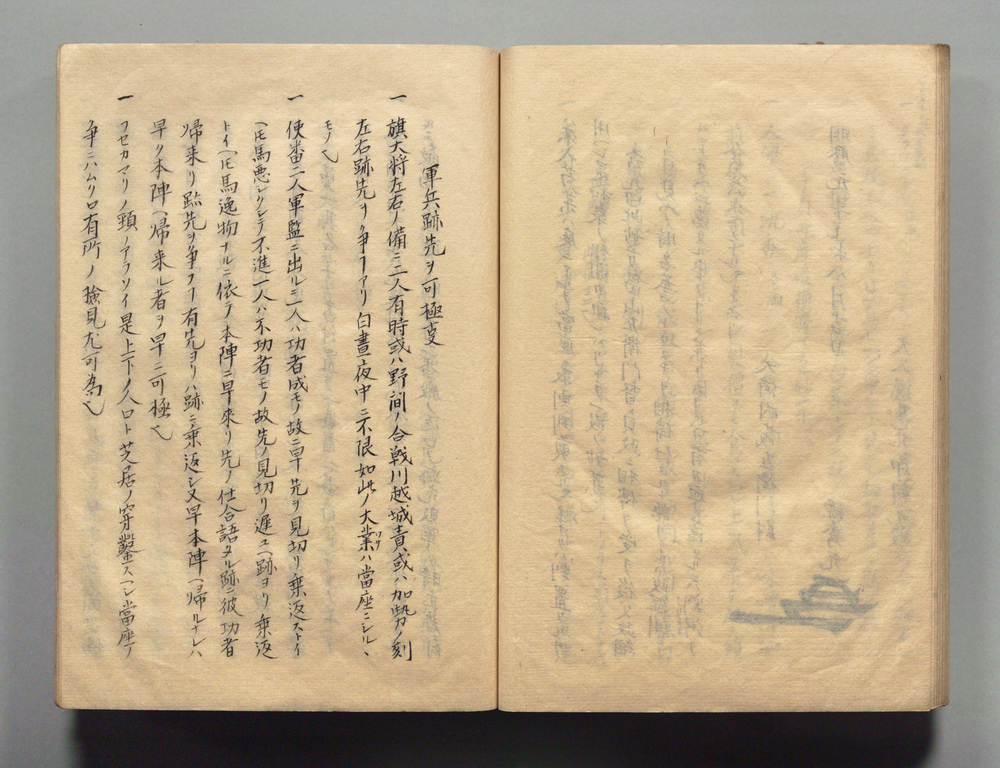 軍兵跡先ヲ可極㕝
一 旗大将左右ノ備ニ二人有時或ハ野間ノ合戦川越城責或ハ加勢ノ刻
左右跡先ヲ争フアリ白晝夜中ニ不限如此ノ大業ハ當座ニシルヽ
モノ也
一 使番二人軍監ニ出ルニ一人ハ功者成モノ故ニ早先ヲ見切リ乗返ストイ
ヘ𪜈馬悪シクシテ不進一人ハ不功者モノ故先ノ見切リ遅ユヘ跡ヨリ乗返
トイヘ𪜈馬逸物ナルニ依テ本陣ニ早来リ先ノ仕合語タル跡ニ彼功者
帰来リ跡先ヲ争フ有先ヨリハ跡ニ乗返シ又早本陣ヘ帰ルナレハ
早ク本陣ヘ帰来ル者ヲ早ニ可極也
一 フセカマリノ頸ノアラソイ是上下ノ人口ト芝居ノ穿鑿スヘシ當座ノ
争ニハムクロ有所ノ檢見尤可為也